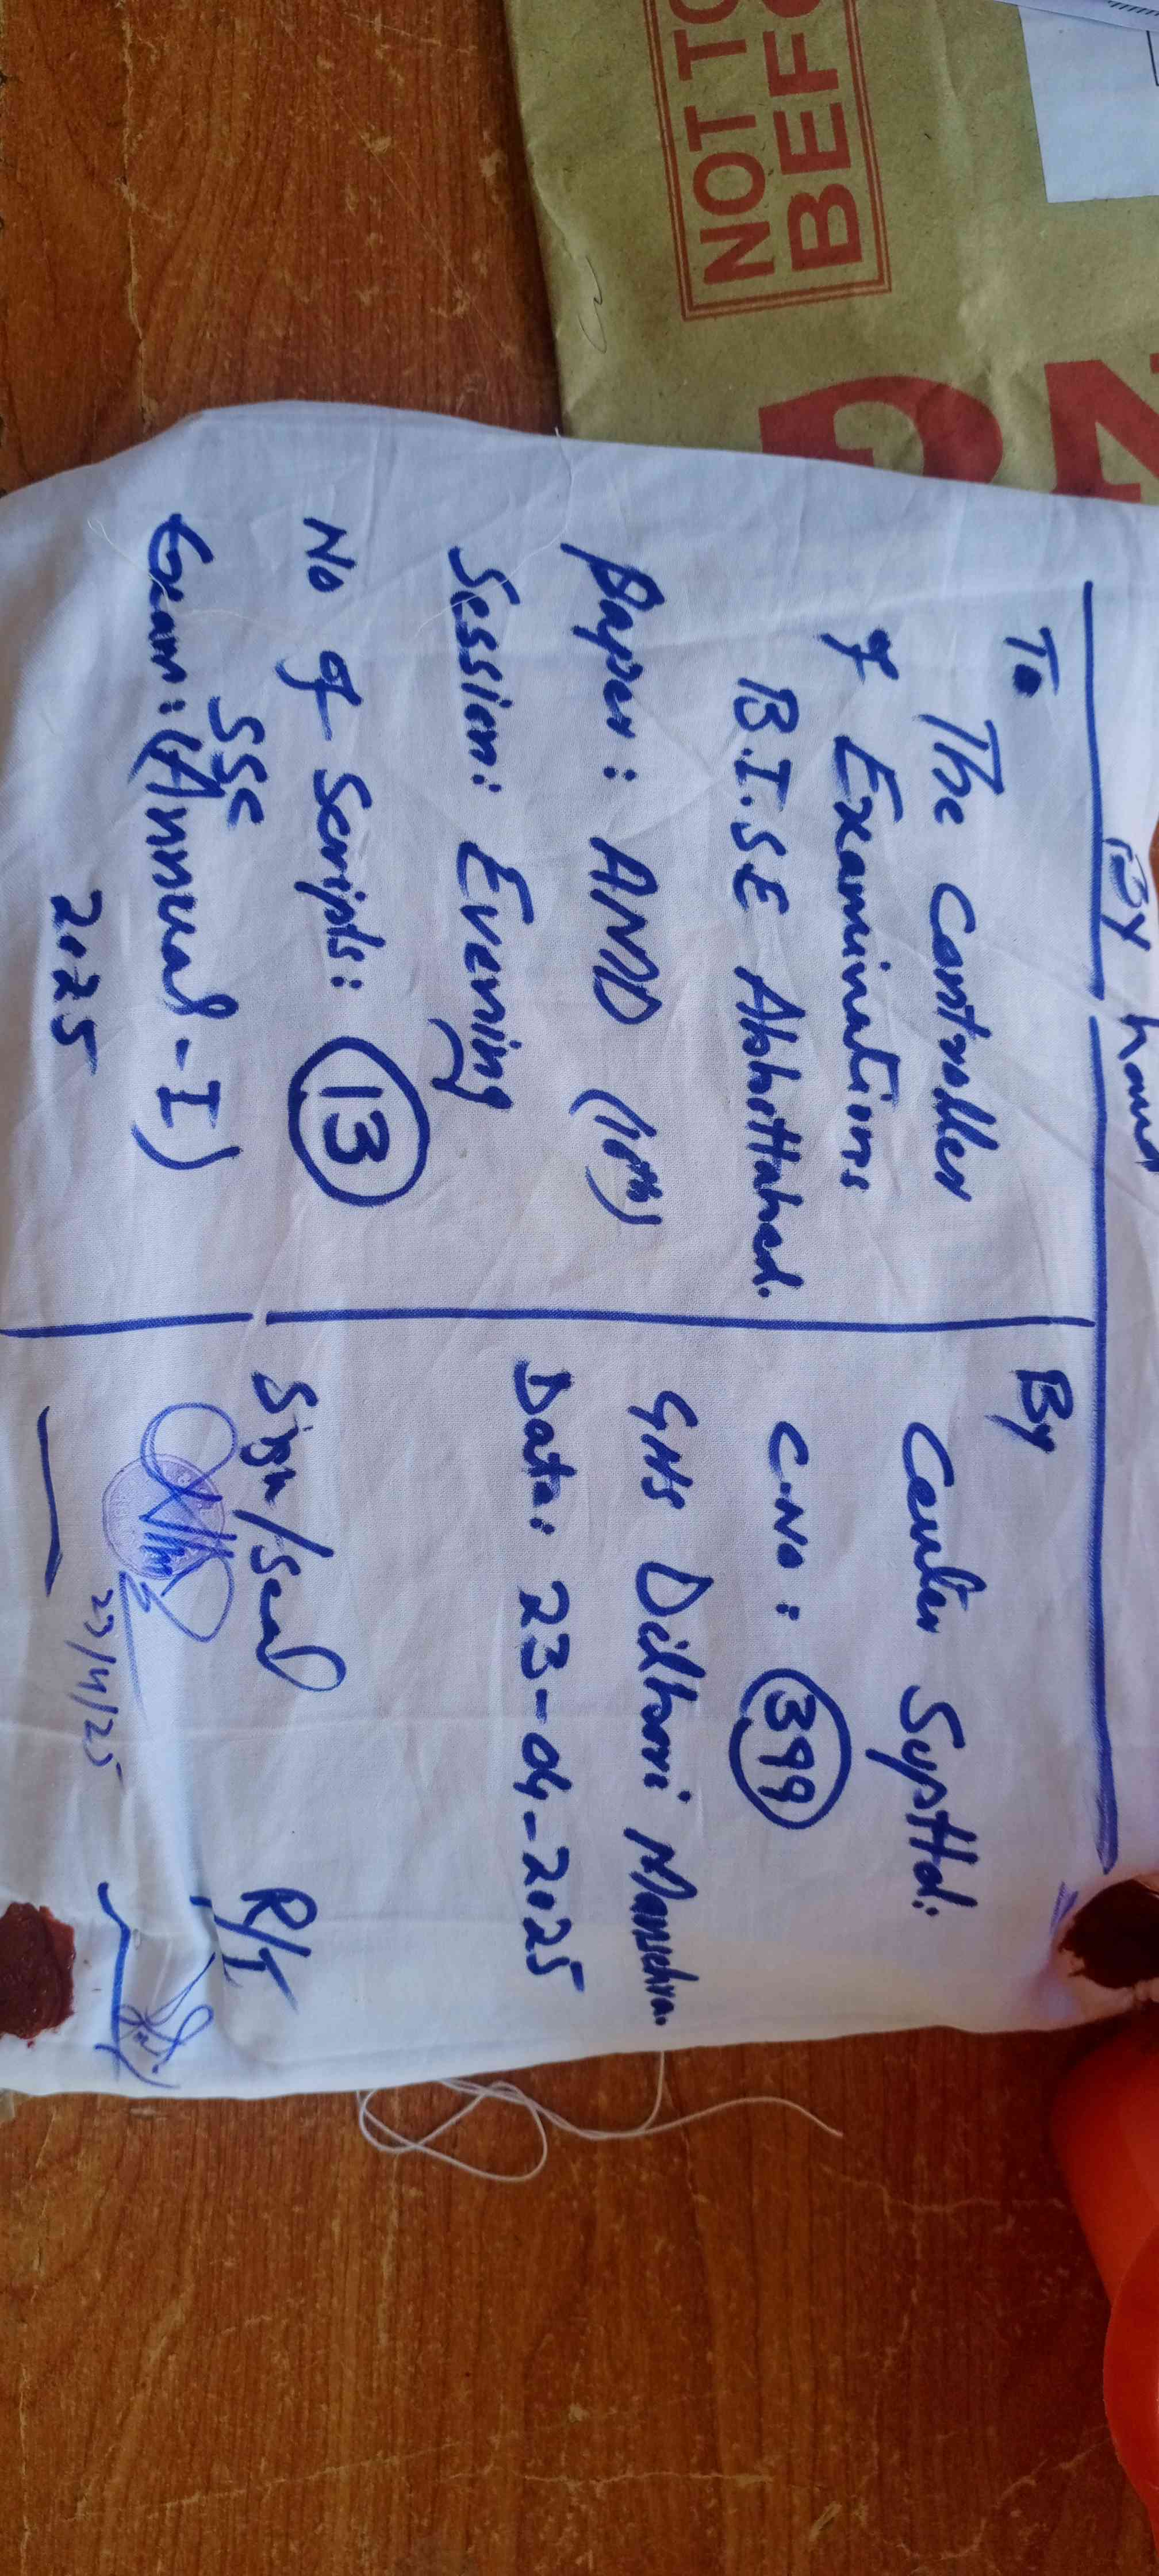 By hand
To
The Controller
of Examinations
B.I.S.E Abbottabad.
Paper: AND (10th)
Session: Evening
No of Scripts: 13
SSC
Exam: (Annual-I)
2025
By
Center Suptd:
C.No: 399
GHS Dilbori Mansehra.
Date: 23-04-2025
Sign/Seal
23/4/25
R/I
NOT TO
BEFO